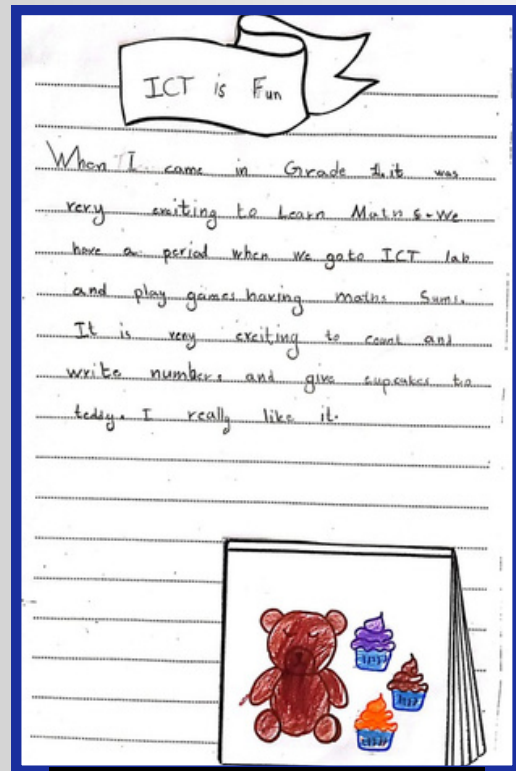 ICT is Fun
When I came in Grade 1. it was
very exciting to Learn Maths. We
have a period when we go to ICT lab
and play games having maths Sums.
It is very exciting to count and
write numbers and give cupcakes to
teddy. I really like it.